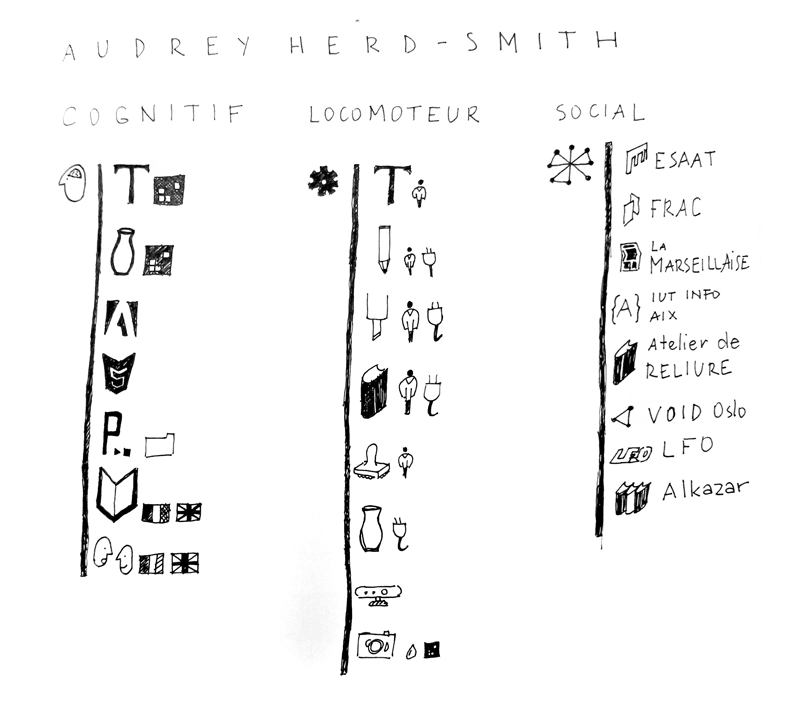 AUDREY HERD-SMITH
COGNITIF
T
A
5
P..
LOCOMOTEUR
T
SOCIAL
ESAAT
FRAC
LA
MARSEILLAISE
{A} IUT INFO
AIX
Atelier de
RELIURE
VOID Oslo
LFO LFO
Alkazar